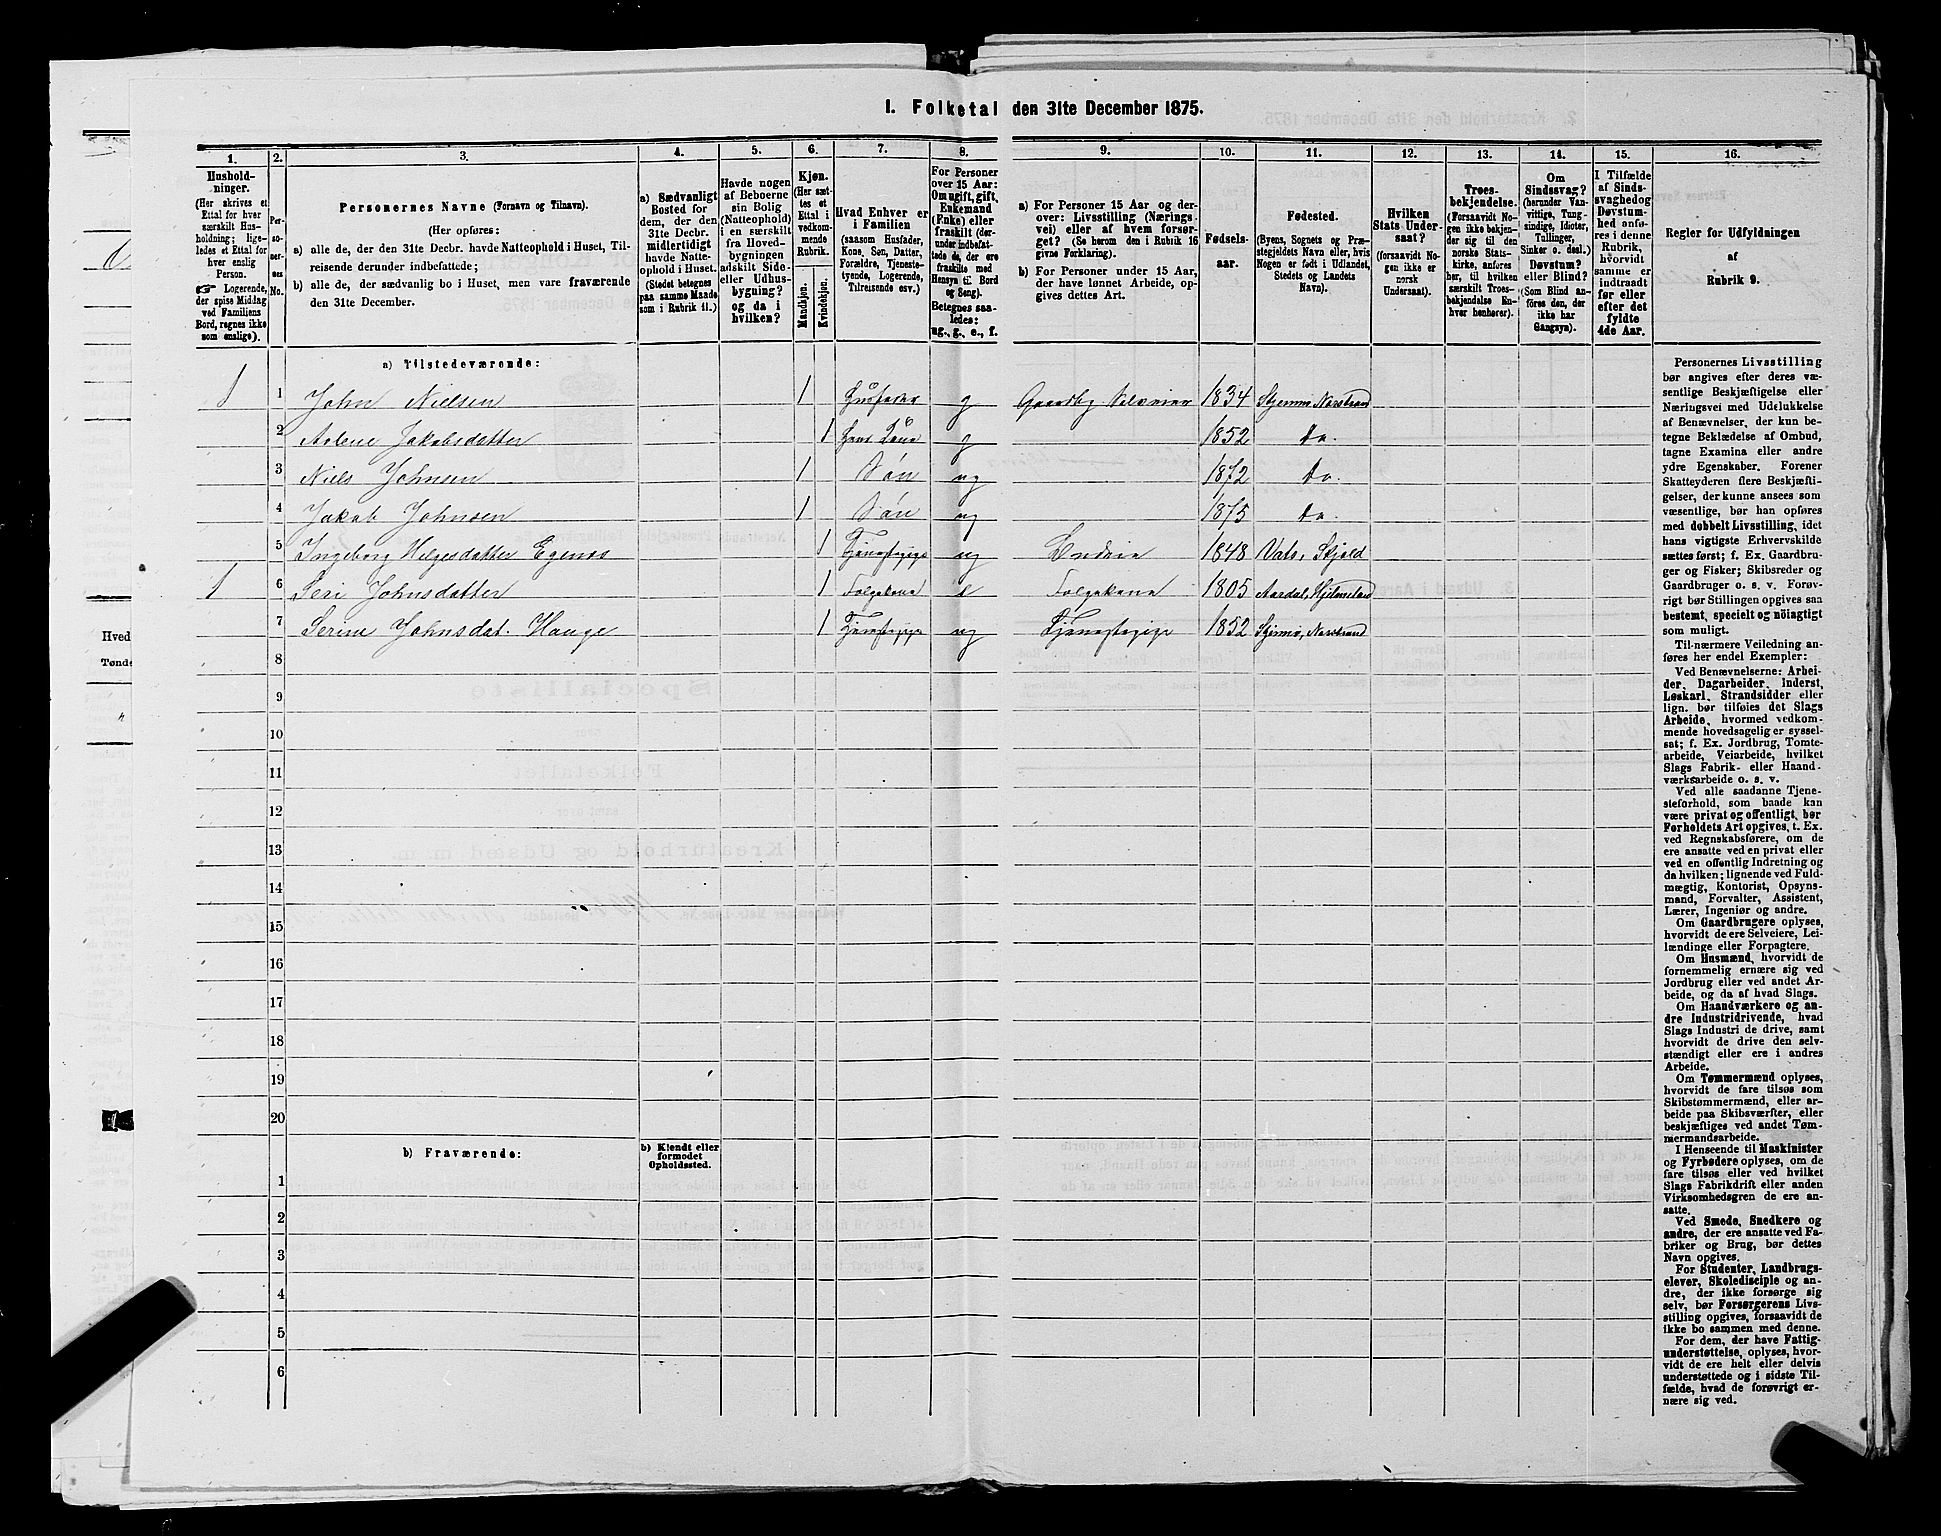 I. Folketal den 31te December 1875.
1. 2. 3. 4. 5. 6. 7. 8. 9. 10. 11. 12. 13. 14. 15. 16.
Hushold-
ninger.
(Her skrives et
Ettal for hver
særskilt Hus-
holdning; lige-
ledes et Ettal for
hver enslig
Person.
☞ Logerende,
der spise Middag
ved Familiens
Bord, regnes ikke
som enslige).
Per-
so-
ner-
nes
No.
Personernes Navne (Fornavn og Tilnavn).
(Her opføres:
a) alle de, der den 31te Decbr. havde Natteophold i Huset, Til-
reisende derunder indbefattede;
b) alle de, der sædvanlig bo i Huset, men vare fraværende
den 31te December.
a) Sædvanligt
Bosted for
dem, der den
31te Decbr.
midlertidigt
havde Natte-
ophold i Huset.
(Stedet betegnes
paa samme Maade
som i Rubrik 11.)
Havde nogen
af Beboerne
sin Bolig
(Natteophold)
i en særskilt
fra Hoved-
bygningen
adskilt Side-
eller Udhus-
bygning?
og da i
hvilken?
Kjøn.
(Her sæt-
tes et
Ettal i
vedkom-
mende
Rubrik.
Mandkjøn.
Kvindekjøn.
Hvad Enhver er
i Familien
(saasom Husfader,
Kone, Søn, Datter,
Forældre, Tjeneste-
tyende, Logerende,
Tilreisende osv.)
For Personer
over 15 Aar:
Om ugift, gift,
Enkemand
(Enke) eller
fraskilt (der-
under indbefat-
tede de, der ere
fraskilte med
Hensyn til Bord
og Seng).
Betegnes saa-
ledes:
ug., g., e., f.
a) For Personer 15 Aar og der-
over: Livsstilling (Nærings-
vei) eller af hvem forsør-
get? (Se herom den i Rubrik 16
givne Forklaring).
b) For Personer under 15 Aar,
der have lønnet Arbeide, op-
gives dettes Art.
Fødsels-
aar.
Fødested.
(Byens, Sognets og Præ-
stegjeldets Navn eller, hvis
Nogen er født i Udlandet,
Stedets og Landets
Navn).
Hvilken
Stats Under-
saat?
(forsaavidt No-
gen ikke er
norsk
Undersaat).
Troes-
bekjendelse.
(Forsaavidt No-
gen ikke bekjen-
der sig til den
norske Stats-
kirke, anføres
her, til hvilken
særskilt Troes-
bekjendelse En-
hver henhører).
Om
Sindssvag?
(herunder Van-
vittige, Tung-
sindige, Idioter,
Tullinger,
Sinker o. desl.)
Døvstum?
eller Blind?
(Som Blind an-
føres den, der
ikke har
Gangsyn).
I Tilfælde
af Sinds-
svaghed og
Døvstum-
hed anfø-
res i denne
Rubrik,
hvorvidt
samme er
indtraadt
før eller
efter det
fyldte
4de Aar.
Regler for Udfyldningen
af
Rubrik 9.
a) Tilstedeværende:
1 1 John Nielsen 1 Husfader g Gaardbr. Selveier 1834 Sjernerø Narstrand
2 Arlene Jakobsdatter 1 Hans Kone g 1852 Do.
3 Niels Johnsen 1 Søn ug 1872 Do.
4 Jakob Johnsen 1 Søn ug 1875 Do.
5 Ingeborg Helgesdatter Egenes 1 Tjenestepige ug 1848 Vats, Skjold
1 6 Seri Johnsdatter 1 Folgekone e Folgekone 1805 Aardal, Hjelmeland
7 Serine Johnsdat. Hauge 1 Tjenestepige ug Tjenestepige 1852 Sjernerø, Narstrand
8
9
10
11
12
13
14
15
16
17
18
19
20
b) Fraværende:
b) Kjendt eller
formodet
Opholdssted.
1
2
3
4
5
6
Personernes Livsstilling
bør angives efter deres væ-
sentlige Beskjæftigelse eller
Næringsvei med Udelukkelse
af Benævnelser, der kun be-
tegne Beklædelse af Ombud,
tagne Examina eller andre
ydre Egenskaber. Forener
Skatteyderen flere Beskjæfti-
gelser, der kunne ansees som
væsentlige, bør han opføres
med dobbelt Livsstilling, idet
hans vigtigste Erhvervskilde
sættes først; f. Ex. Gaardbru-
ger og Fisker; Skibsreder og
Gaardbruger o. s. v. Forøv-
rigt bør Stillingen opgives saa
bestemt, specielt og nøiagtigt
som muligt.
Til nærmere Veiledning an-
føres her endel Exempler:
Ved Benævnelserne: Arbei-
der, Dagarbeider, Inderst,
Løskarl, Strandsidder eller
lign. bør tilføies det Slags
Arbeide, hvormed vedkom-
mende hovedsagelig er syssel-
sat; f. Ex. Jordbrug, Tomte-
arbeide, Veiarbeide, hvilket
Slags Fabrik- eller Haand-
værksarbeide o. s. v.
Ved alle saadanne Tjene-
steforhold, som baade kan
være privat og offentligt, bør
Forholdets Art opgives, t. Ex.
ved Regnskabsførere, om de
ere ansatte ved en privat eller
ved en offentlig Indretning og
da hvilken; lignende ved Fuld-
mægtig, Kontorist, Opsyns-
mand, Forvalter, Assistent,
Lærer, Ingeniør og andre.
Om Gaardbrugere oplyses,
hvorvidt de ere Selveiere, Lei-
lændinge eller Forpagtere.
Om Husmænd, hvorvidt de
fornemmelig ernære sig ved
Jordbrug eller ved andet Ar-
beide, og da af hvad Slags.
Om Haandværkere og an-
dre Industridrivende, hvad
Slags Industri de drive, samt
hvorvidt de drive den selv-
stændigt eller ere i andres
Arbeide.
Om Tømmermænd oplyses,
hvorvidt de fare tilsøs som
Skibstømmermænd, eller ar-
beide paa Skibsværfter, eller
beskjæftiges ved andet Tøm-
mermandsarbeide.
I Henseende til Maskinister
og Fyrbødere oplyses, om de
fare tilsøs eller ved hvilket
Slags Fabrikdrift eller anden
Virksomhedsgren de ere an-
satte.
Ved Smede, Snedkere og
andre, der ere ansatte ved Fa-
briker og Brug, bør dettes
Navn opgives.
For Studenter, Landbrugs-
elever, Skoledisciple og an-
dre, der ikke forsørge sig
selv, bør Forsørgerens Livs-
stilling opgives, forsaavidt de
ikke bo sammen med denne.
For dem, der have Fattig-
understøttelse, oplyses, hvor-
vidt de ere helt eller delvis
understøttede og i sidste Til-
fælde, hvad de forøvrigt er-
nære sig ved.
Hved
Tønde